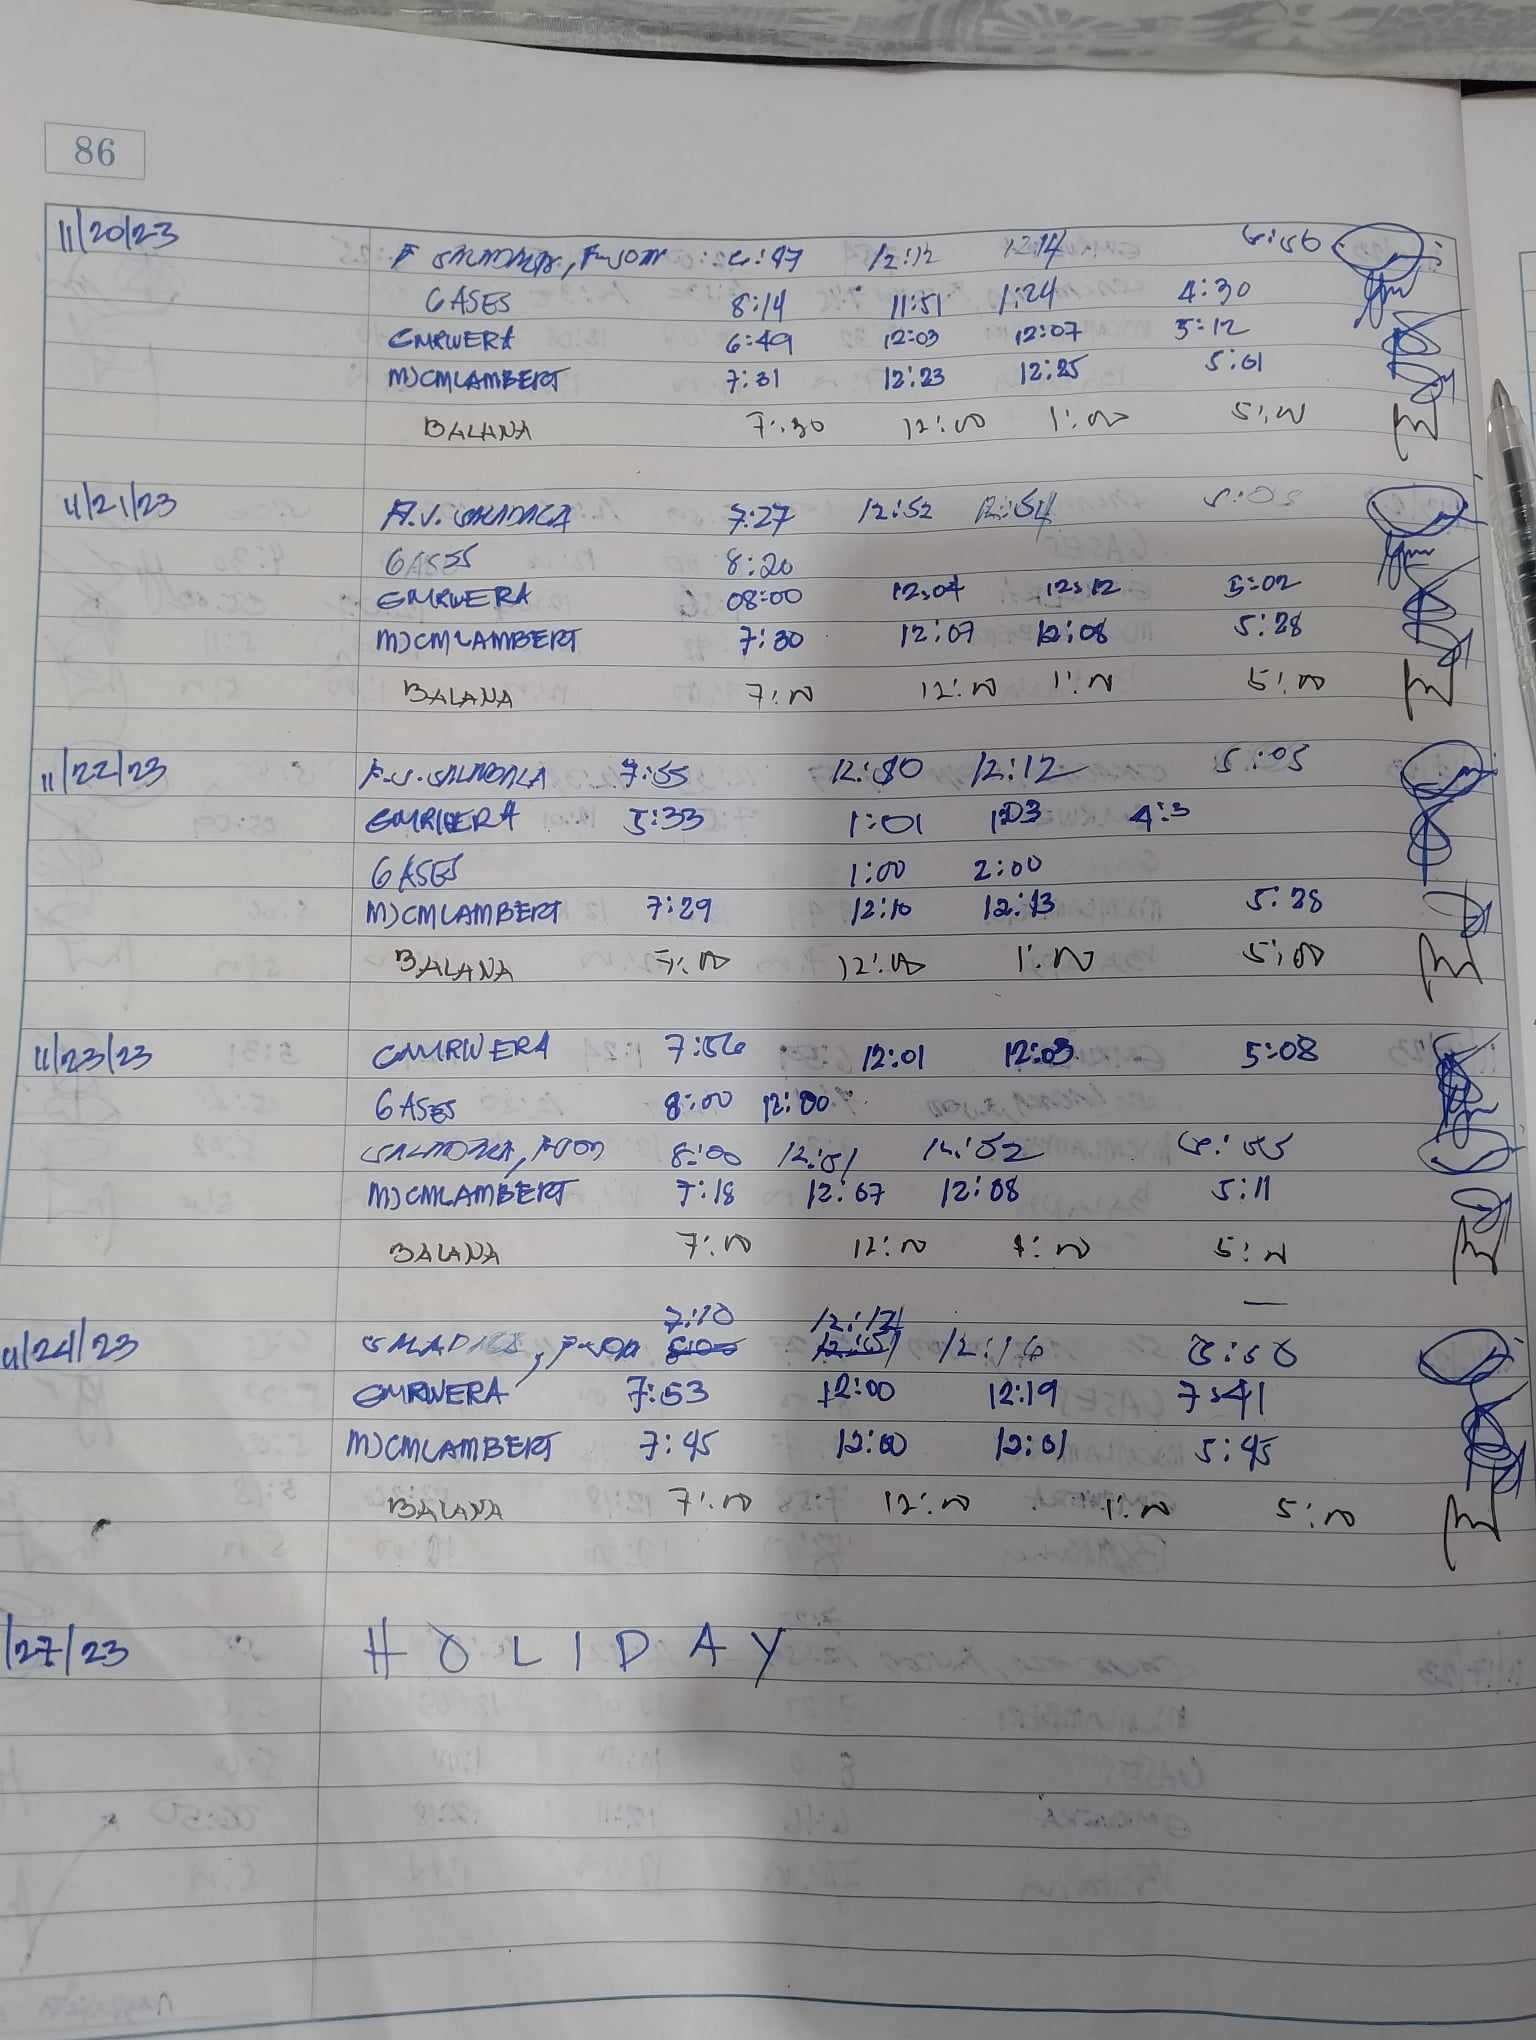 86
11/20/23
6:56
GASES 8:14 11:51 1:24 4:30
GMRIVERA 6:49 12:03 12:07 5:12
MJCMLAMBERT 7:31 12:23 12:25 5:01
BALANA 7:30 12:00 1:00 5:00
11/21/23 7:27 12:52 12:54 5:05
GASES 8:20
GMRIVERA 08:00 12:04 12:12 5:02
MJCMLAMBERT 7:30 12:07 12:08 5:28
BALANA 7:00 12:00 1:00 5:00
11/22/23 7:55 12:12 5:05
GMRIVERA 5:33 1:01 1:03 4:3
GASES 1:00 2:00
MJCMLAMBERT 7:29 12:10 12:13 5:28
BALANA 7:00 12:00 1:00 5:00
11/23/23 GMRIVERA 7:56 12:01 12:03 5:08
GASES 8:00 12:00
8:00 12:51 12:52
MJCMLAMBERT 7:18 12:07 12:08 5:11
BALANA 7:00 12:00 1:00 5:00
7:10 12:12
11/24/23 12:16
GMRIVERA 7:53 12:00 12:19 7:41
MJCMLAMBERT 7:45 12:00 12:01 5:45
BALANA 7:00 12:00 1:00 5:00
/27/23 HOLIDAY